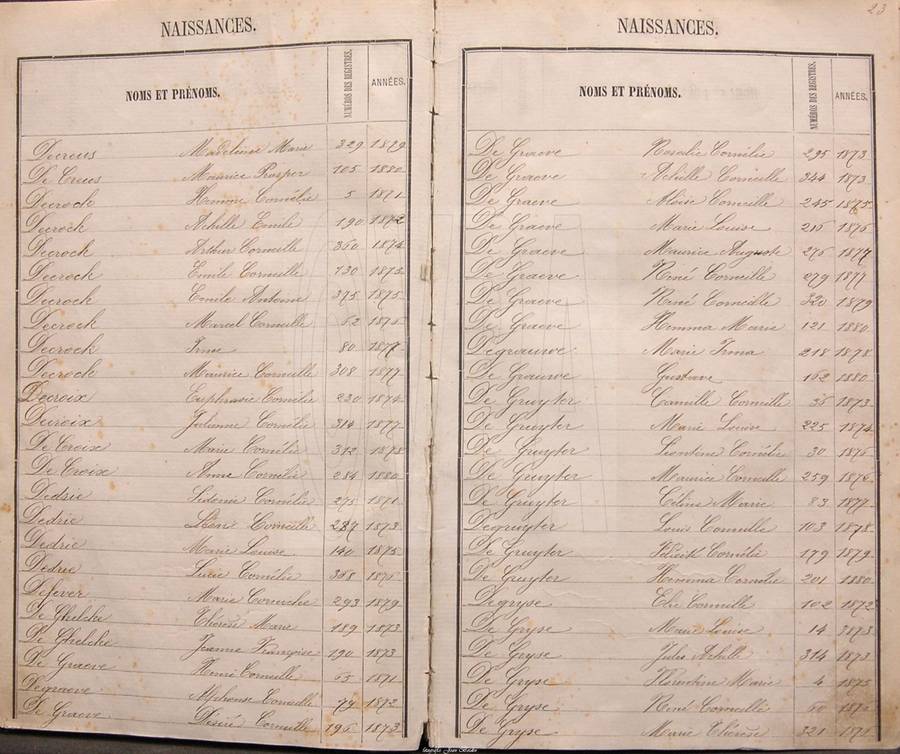 NAISSANCES.
NOMS ET PRÉNOMS. NUMÉROS DES REGISTRES. ANNÉES.
Decreus Madeleine Marie 329 1879
De Creus Maurice Prosper 105 1880
Decroch Hemerie Cornélie 5 1871
Decroch Achille Emile 190 1872
Decroch Arthur Corneille 360 1874
Decroch Emile Corneille 130 1875
Decroch Emile Antoine 375 1875
Decroch Marcel Corneille 62 1876
Decroch Irma 80 1877
Decroch Maurice Corneille 308 1877
Decroix Euphrasie Cornélie 230 1874
Decroix Julienne Cornélie 314 1877
De Croix Marie Cornélie 312 1878
De Croix Anna Cornélie 284 1880
Dedrie Sidonie Cornélie 275 1871
Dedrie Léonie Corneille 287 1873
Dedrie Marie Louise 140 1875
Dedrie Lucie Cornélie 368 1876
Defever Marie 293 1879
De Ghelcke Thérèse Marie 189 1873
De Ghelcke Jeanne Françoise 190 1873
De Graeve Henri Corneille 63 1871
Degraeve Alphonse Corneille 79 1872
De Graeve Désiré Corneille 196 1873
23
NAISSANCES.
NOMS ET PRÉNOMS. NUMÉROS DES REGISTRES. ANNÉES.
De Graeve Rosalie Cornélie 295 1873
De Graeve Achille Corneille 344 1873
De Graeve Aloïse Corneille 245 1875
De Graeve Marie Louise 216 1876
De Graeve Maurice Auguste 276 1877
De Graeve René Corneille 279 1877
De Graeve René Corneille 320 1879
De Graeve Hemma Marie 121 1880
Degrauwe Marie Irma 218 1878
De Grauwe Gustave 162 1880
De Gruyter Camille Corneille 36 1873
De Gruyter Marie Louise 225 1874
De Gruyter Léontine Cornélie 30 1876
De Gruyter Maurice Corneille 259 1876
De Gruyter Céline Marie 83 1877
Degruyter Louis Corneille 103 1878
De Gruyter Cornélie 179 1879
De Gruyter Hemma Cornélie 201 1880
Degryse Elie Corneille 102 1872
De Gryse Marie Louise 14 1873
De Gryse Jules Achille 314 1873
De Gryse Florentine Marie 4 1875
De Gryse René Corneille 60 1876
De Gryse Marie Thérèse 321